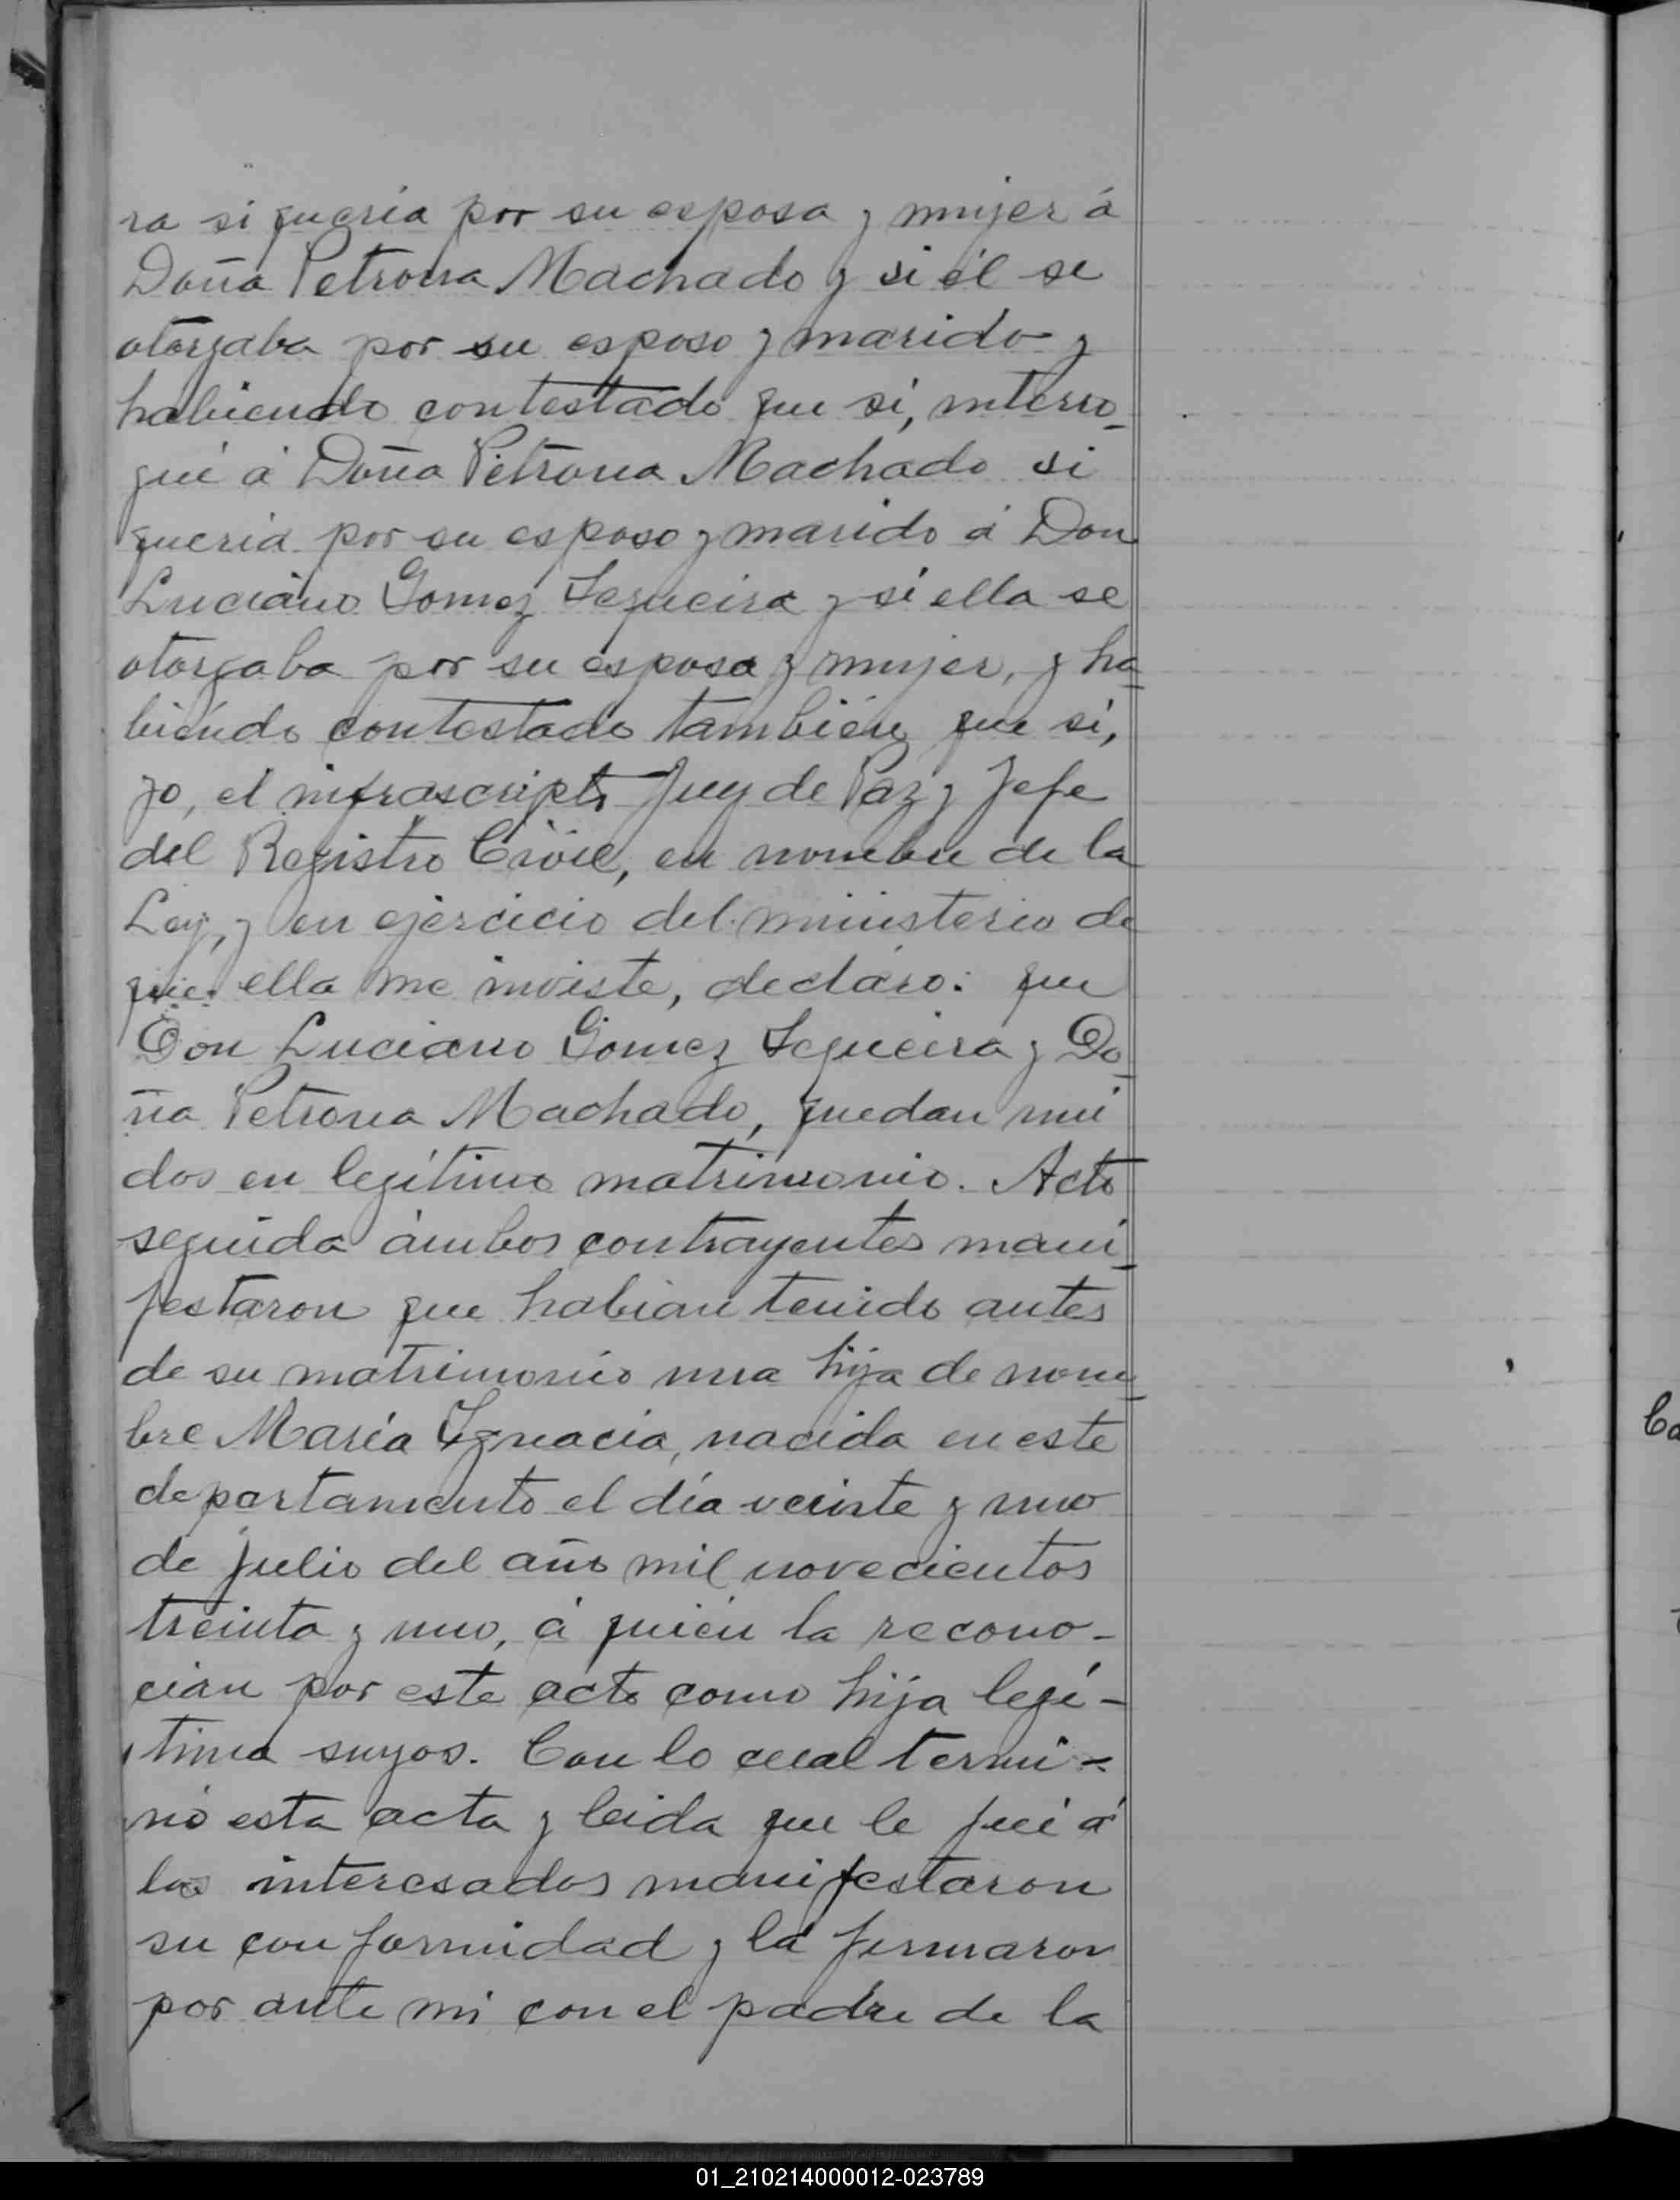 ra si quería por su esposa y mujer á
Doña Petrona Machado y si él se
otorgaba por su esposo y marido y
habiendo contestado que si, interro-
gué á Doña Petrona Machado si
quería por su esposo y marido á Don
Luciano Gomez Sequeira y si ella se
otorgaba por su esposa y mujer, y ha-
biéndo contestado también que si,
yo, el infrascripto Juez de Paz y Jefe
del Registro Civil, en nombre de la
Ley, y en ejercicio del ministerio de
que ella me inviste, declaro: que
Don Luciano Gomez Sequeira y Do-
ña Petrona Machado, quedan uni
dos en legítimo matrimonio. Acto
seguida ámbos contrayentes mani-
festaron que habian tenido antes
de su matrimonio una hija de nom-
bre María Ignacia, nacida en este
departamento el día veinte y uno
de Julio del año mil novecientos
treinta y uno, á quién la recono-
cian por este acto como hija legí-
tima suyos. Con lo cual termi-
nó esta acta y leida que le fué á
los interesados manifestaron
su conformidad y la firmaron
por ante mi con el padre de la
01_210214000012-023789